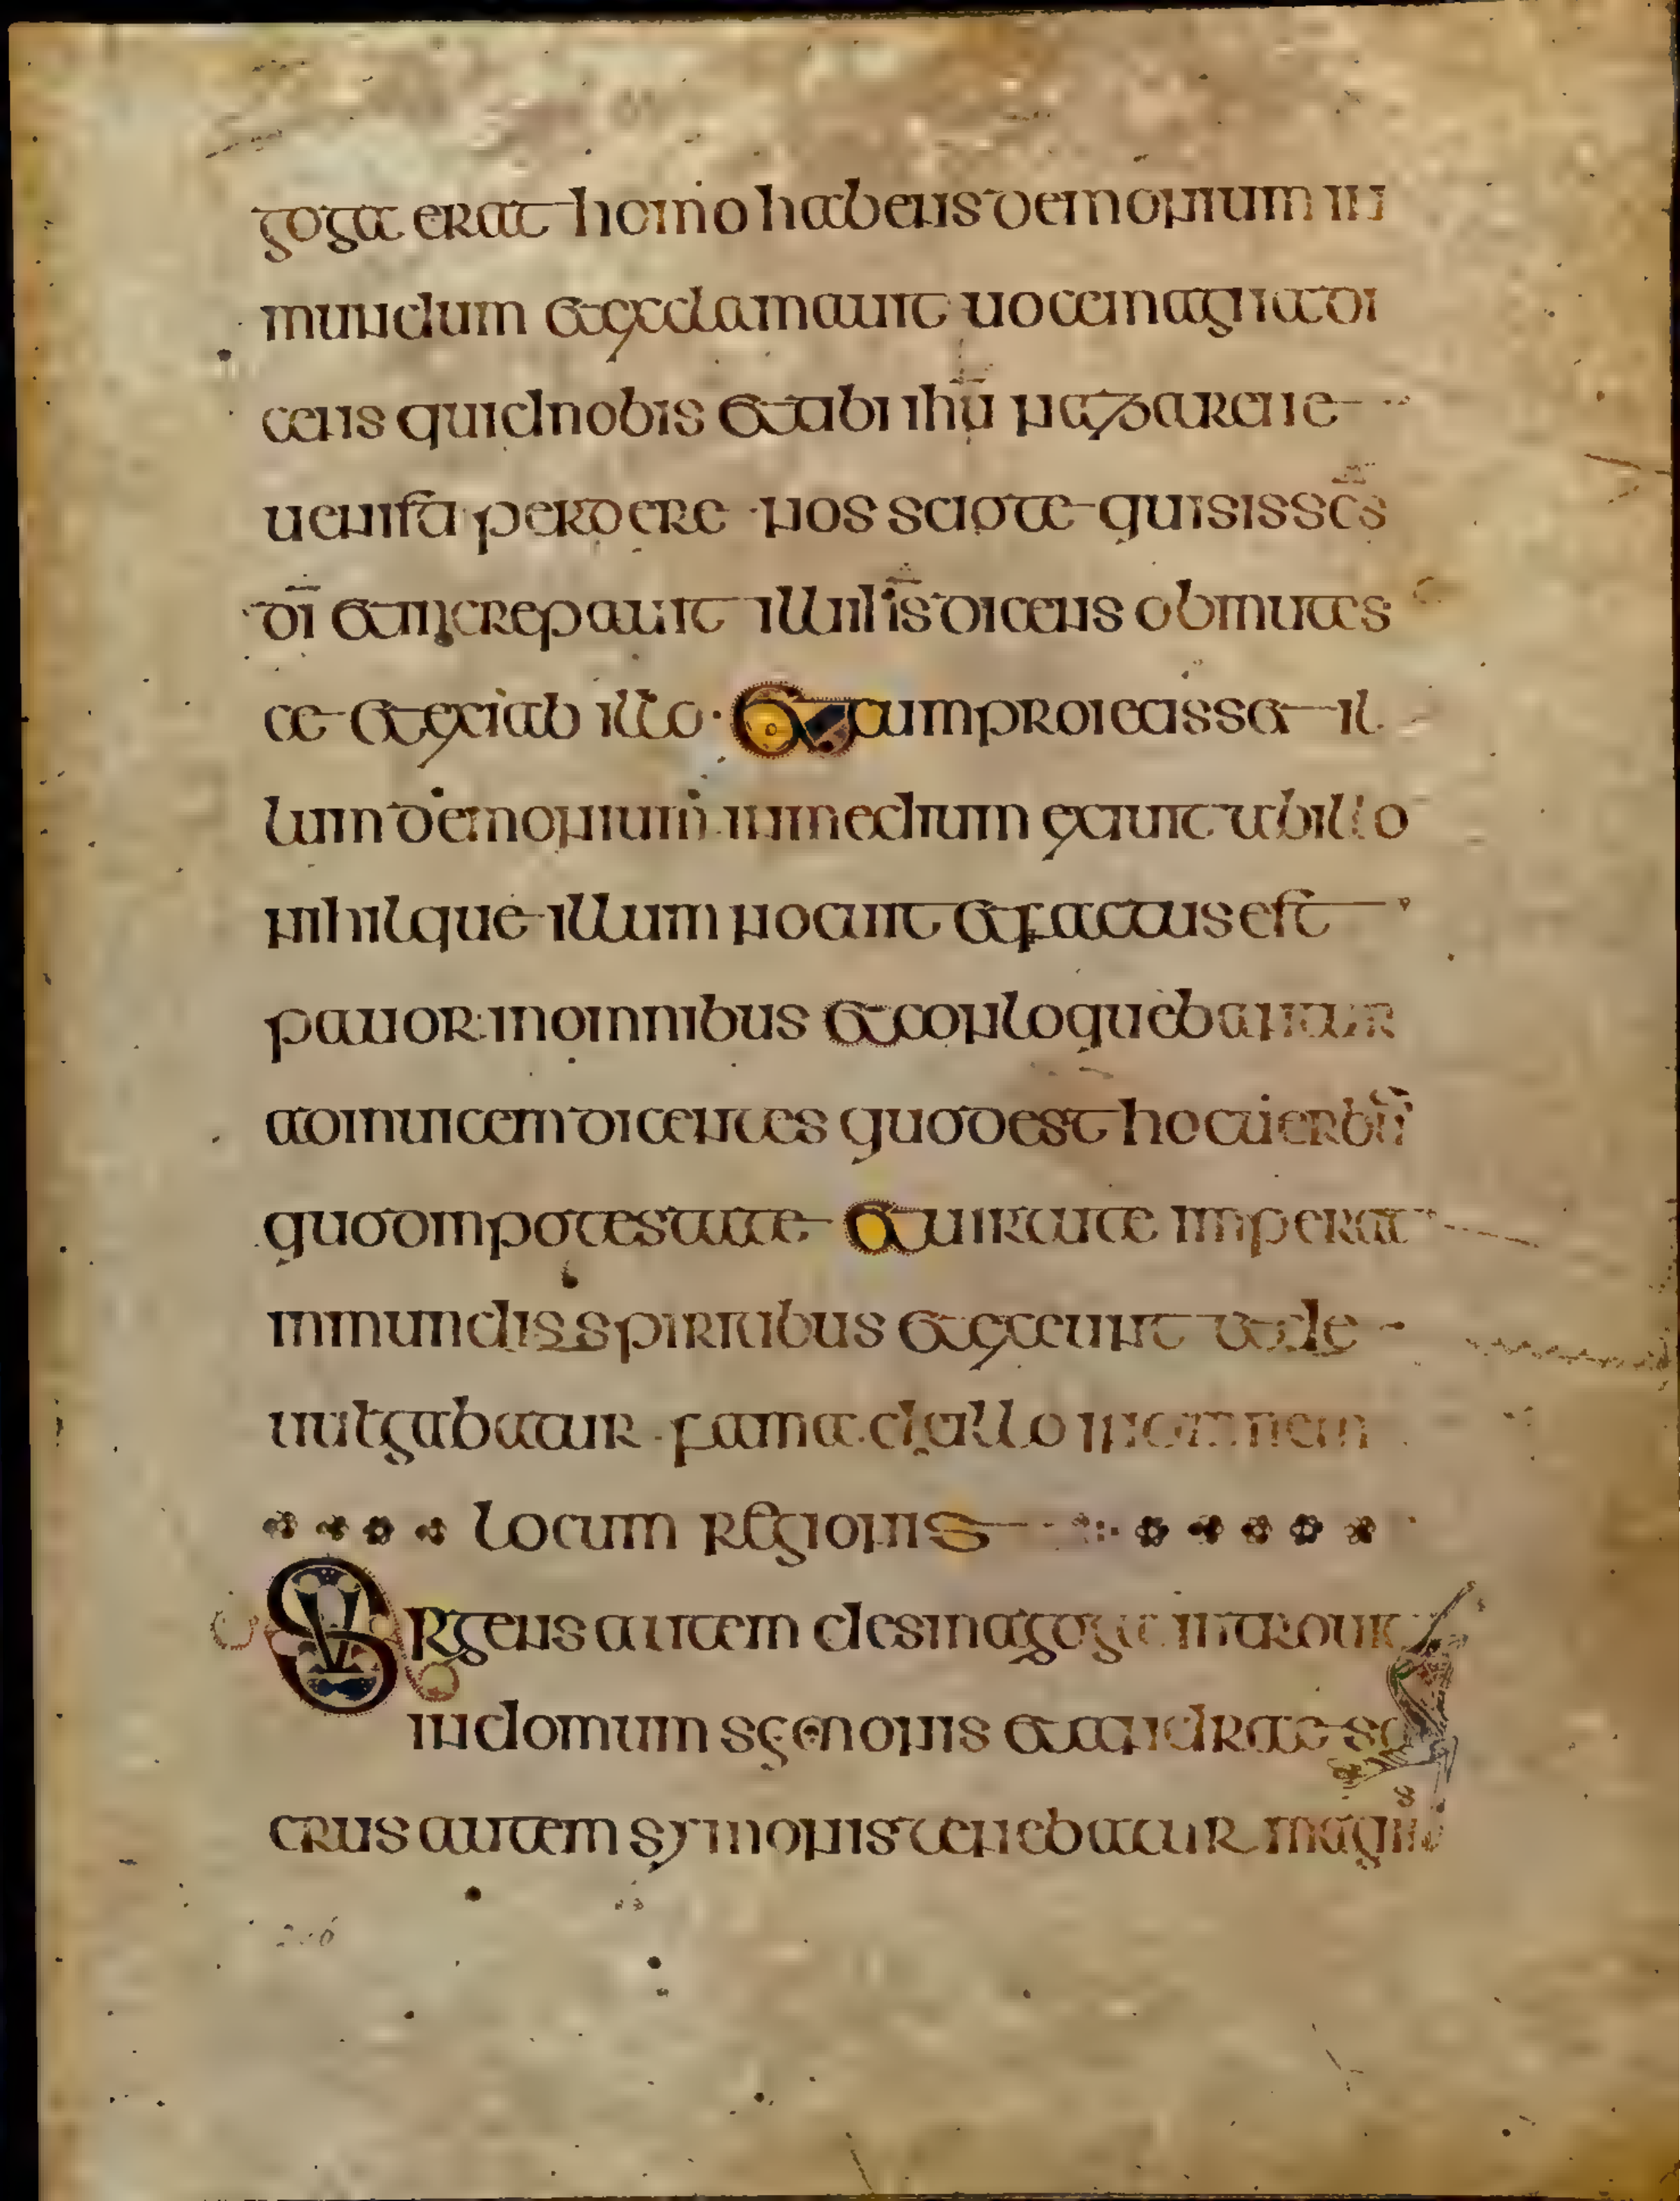 goga erat homo habens demonium in
mundum et exclamauit uoce magna di
cens quid nobis et tibi ihū nazarene
uenisti perdere nos scio te quis is scs
dī et increpauit illi ihs dicens obmutes
ce et exi ab illo · Et cum proiecisset il
lum demonium in medium exiuit ab illo
nihilque illum nocuit et factus est
pauor in omnibus et conloquebantur
ad inuicem dicentes quod est hoc uerbū
quod in potestate et uirtute imperat
inmundis spiritibus et exeunt et de
uulgabatur fama de illo in omnem
locum regionis
SURgens autem de sinagoga introiuit
in domum semonis et andrae so
crus autem symonis tenebatur magnis